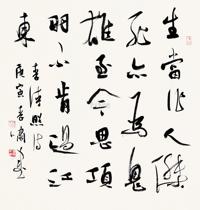 生當作人傑
死亦為鬼
雄至今思項
羽不肯過江
東 李清照詩
庚寅春